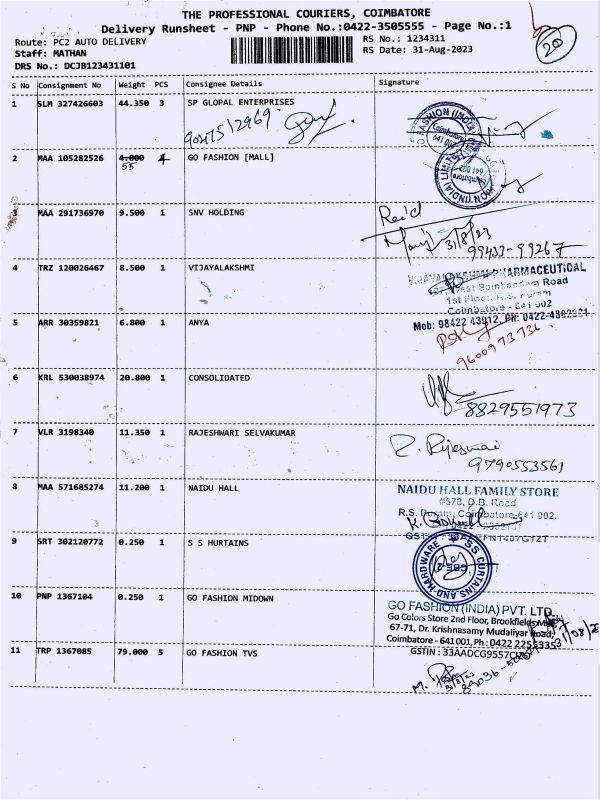 THE PROFESSIONAL COURIERS, COIMBATORE
Delivery Runsheet - PNP - Phone No.:0422-3505555 - Page No.:1
20
Route: PC2 AUTO DELIVERY
RS No.: 1234311
Staff: MATHAN
RS Date: 31-Aug-2023
DRS No.: DCJB123431101
S No Consignment No Weight PCS Consignee Details Signature
1 SLM 327426603 44.350 3 SP GLOPAL ENTERPRISES
9047512969.
2 MAA 105282526 4.000 4 GO FASHION [MALL]
55
3 MAA 291736970 9.500 1 SNV HOLDING
Rec'd
31/8/23
99433-99267
4 TRZ 120026467 8.500 1 VIJAYALAKSHMI
VIJAYALAKSHMI PHARMACEUTICAL
West Sambandam Road
1st Floor, R.S. Puram
Coimbatore - 641 002
Mob: 98422 43912, Ph: 0422-4382221
5 ARR 30359821 6.800 1 ANYA
9600973736.
6 KRL 530038974 20.800 1 CONSOLIDATED
8829551973
7 VLR 3198340 11.350 1 RAJESHWARI SELVAKUMAR
9790553561
8 MAA 571685274 11.200 1 NAIDU HALL
NAIDU HALL FAMILY STORE
#578, D.B. Road
R.S. Puram, Coimbatore-641 002.
9 SRT 302120772 0.250 1 S S HURTAINS
SS CURTAINS AND HARDWARE
CBE-2
10 PNP 1367104 0.250 1 GO FASHION MIDOWN
GO FASHION (INDIA) PVT. LTD.
Go Colors Store 2nd Floor, Brookfields Mall
67-71, Dr. Krishnasamy Mudaliyar Road,
Coimbatore - 641001, Ph : 0422 2255335
31/08/23
11 TRP 1367085 79.000 5 GO FASHION TVS
M.
31/8/23